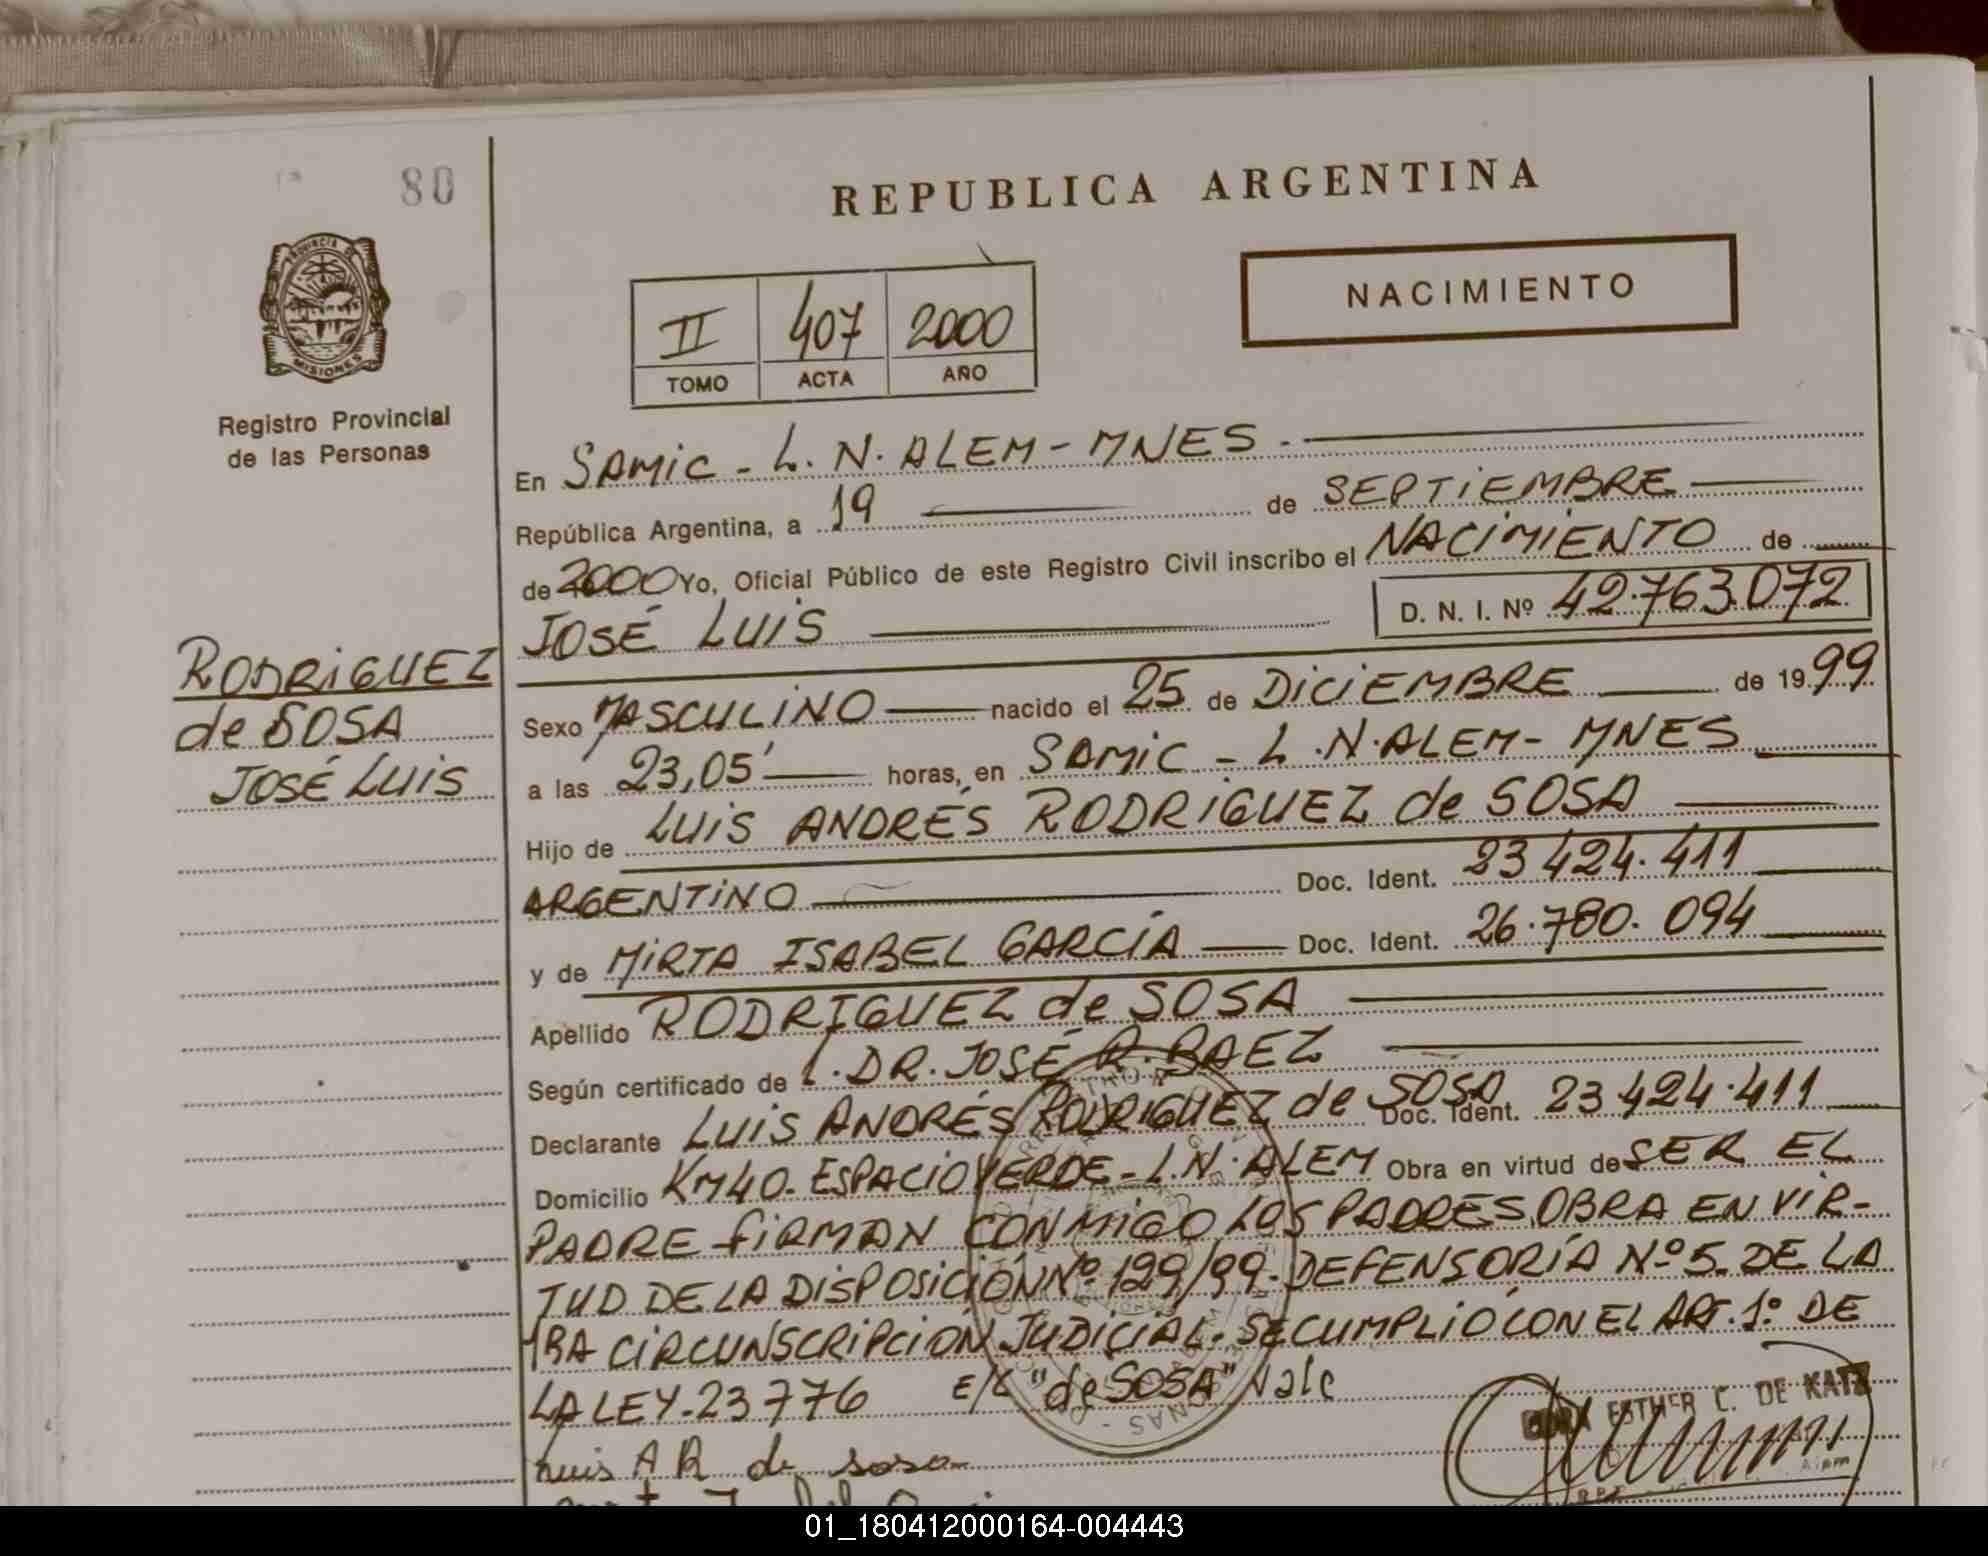 80
REPUBLICA ARGENTINA
PROVINCIA DE
MISIONES
NACIMIENTO
II 407 2000
TOMO ACTA AÑO
Registro Provincial
de las Personas
En SAMIC - L. N. ALEM - MNES . -
República Argentina, a 19 de SEPTIEMBRE
de 2000 Yo, Oficial Público de este Registro Civil inscribo el NACIMIENTO de
JOSÉ LUIS D. N. I. Nº 42.763.072
RODRIGUEZ
de SOSA
JOSÉ LUIS
Sexo MASCULINO nacido el 25 de DICIEMBRE de 1999
a las 23,05' horas, en SAMIC - L.N.ALEM - MNES
Hijo de LUIS ANDRÉS RODRIGUEZ de SOSA
ARGENTINO Doc. Ident. 23 424.411
y de MIRTA ISABEL GARCÍA Doc. Ident. 26.780.094
Apellido RODRIGUEZ de SOSA
Según certificado de DR. JOSÉ R. BAEZ
Declarante LUIS ANDRÉS RODRIGUEZ de SOSA Doc. Ident. 23 424.411
Domicilio KM40. ESPACIO VERDE - L.N. ALEM Obra en virtud de SER EL
PADRE FIRMAN CONMIGO LOS PADRES, OBRA EN VIR-
TUD DE LA DISPOSICIÓN Nº 129/99. DEFENSORÍA Nº 5. DE LA
1RA CIRCUNSCRIPCION JUDICIAL. SE CUMPLIÓ CON EL ART. 1º DE
LA LEY. 23776 E/L "de SOSA" Vale
ESTHER C. DE KATZ
Luis A R de sosa
01_180412000164-004443